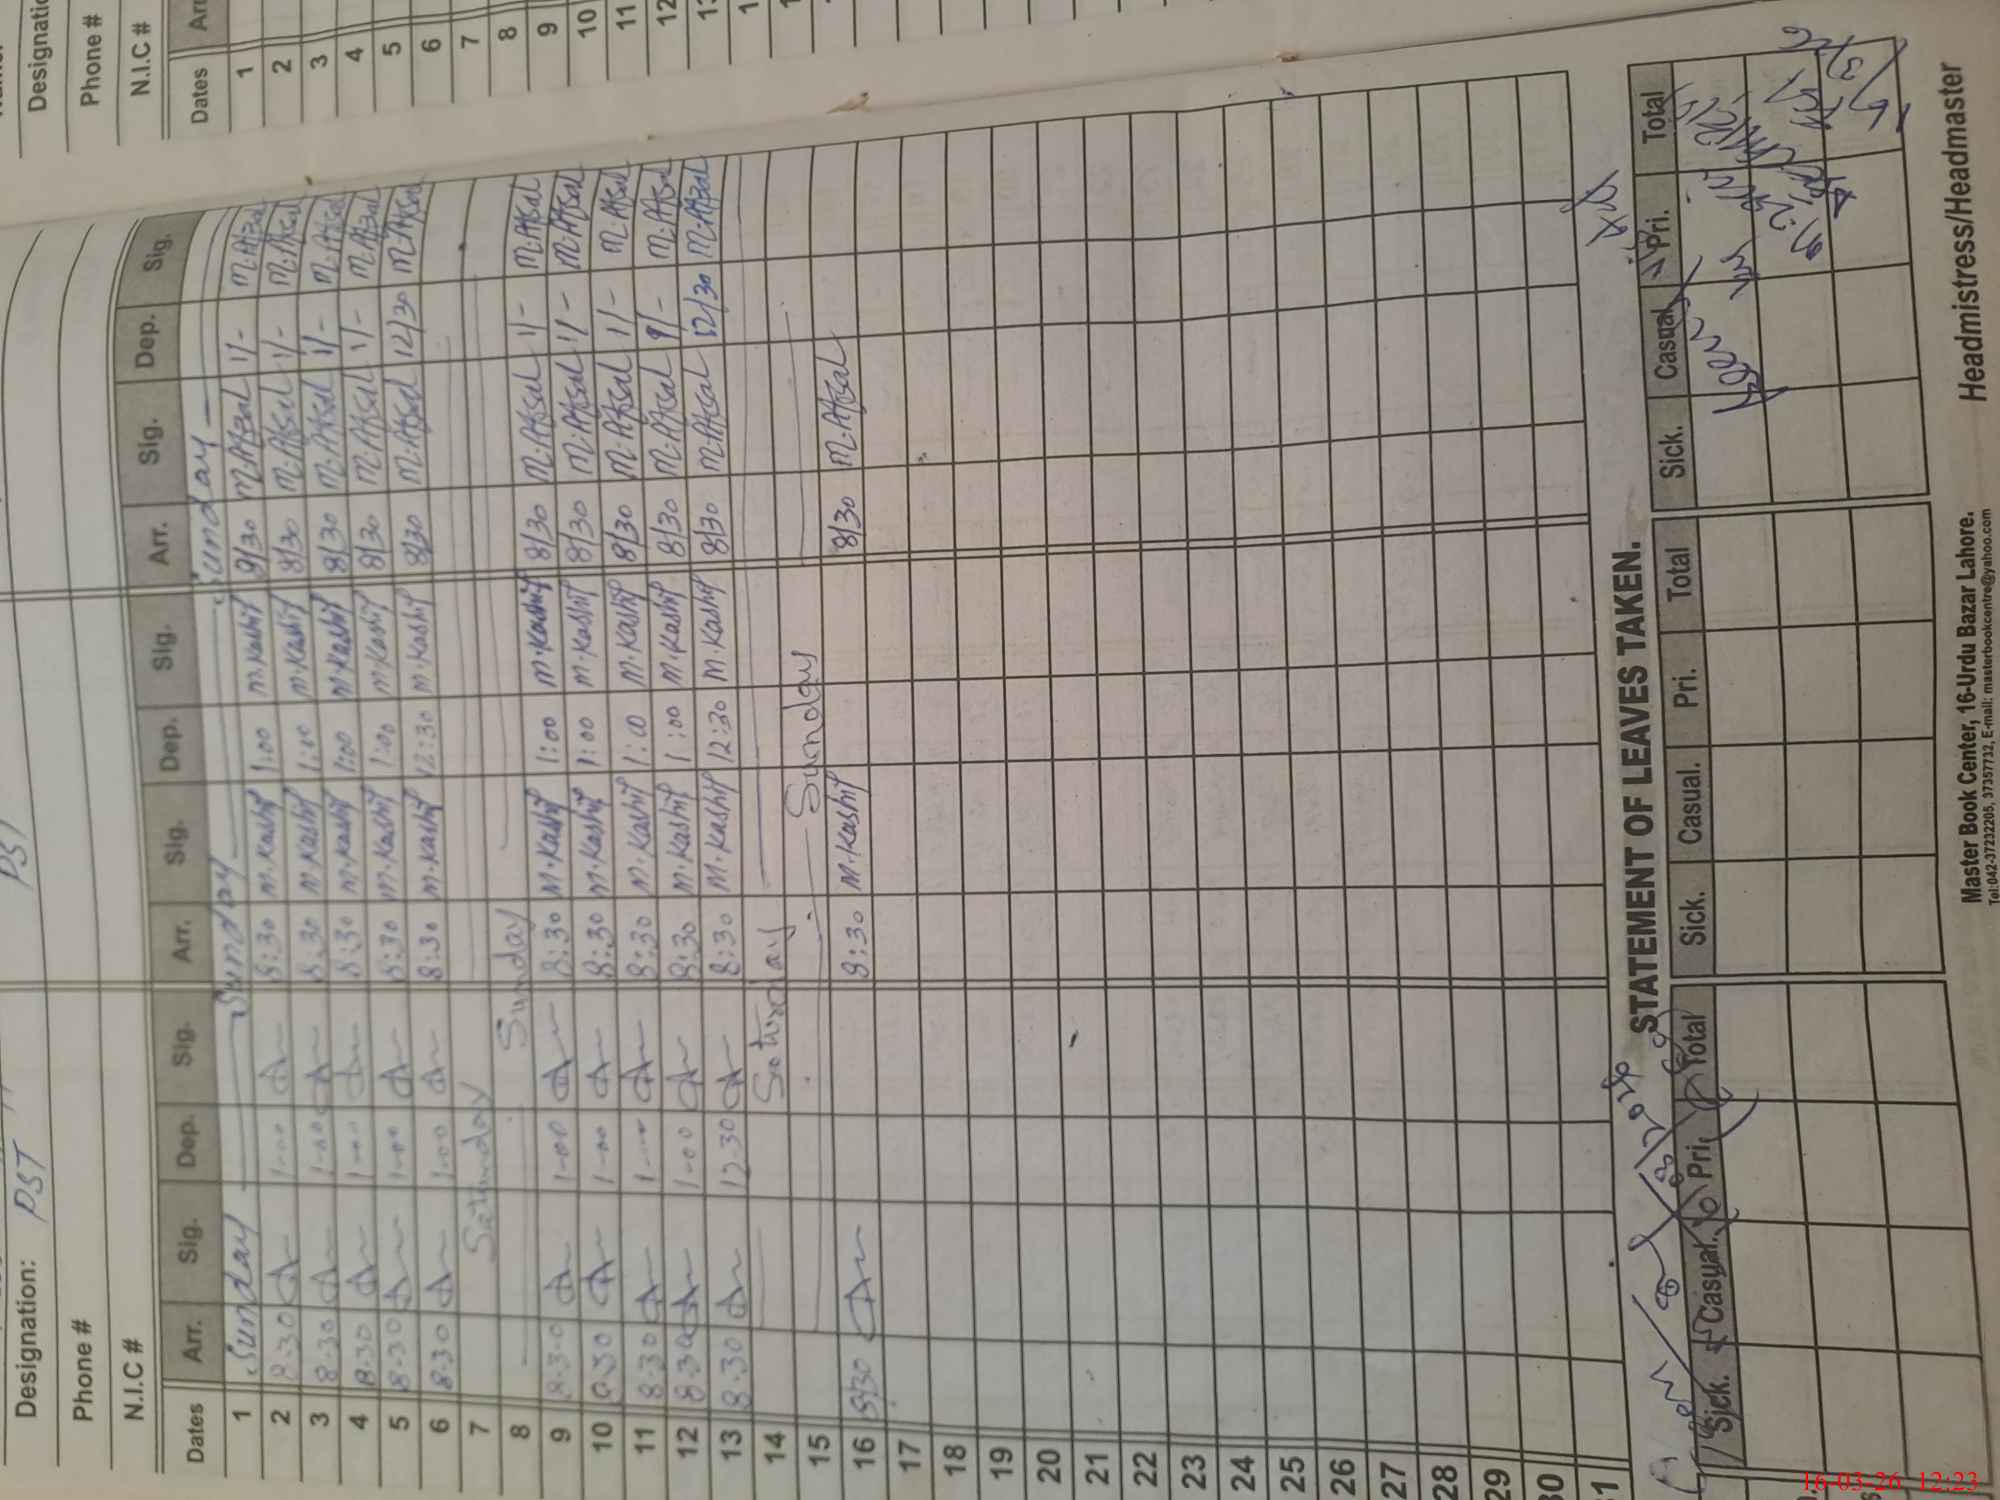 Designation: PST
PST
Phone #
N.I.C #
Dates Arr. Sig. Dep. Sig. Arr. Sig. Dep. Sig. Arr. Sig. Dep. Sig.
1 Sunday Sunday Sunday
2 8.30 1-00 8:30 M.Kashif 1:00 M.Kashif 8/30 M.Afzal 1/- M.Afzal
3 8.30 1-00 8:30 M.Kashif 1:00 M.Kashif 8/30 M.Afzal 1/- M.Afzal
4 8.30 1-00 8:30 M.Kashif 1:00 M.Kashif 8/30 M.Afzal 1/- M.Afzal
5 8.30 1-00 8:30 M.Kashif 1:00 M.Kashif 8/30 M.Afzal 1/- M.Afzal
6 8.30 1-00 8:30 M.Kashif 12:30 M.Kashif 8/30 M.Afzal 12/30 M.Afzal
7 Saturday
8 Sunday
9 8.30 1-00 8:30 M.Kashif 1:00 M.Kashif 8/30 M.Afzal 1/- M.Afzal
10 8.30 1-00 8:30 M.Kashif 1:00 M.Kashif 8/30 M.Afzal 1/- M.Afzal
11 8.30 8:30 M.Kashif 1:00 M.Kashif 8/30 M.Afzal 1/- M.Afzal
12 8.30 1-00 8:30 M.Kashif 1:00 M.Kashif 8/30 M.Afzal M.Afzal
13 8.30 12.30 8:30 M.Kashif 12:30 M.Kashif 8/30 M.Afzal 12/30 M.Afzal
14 Saturday
15 Sunday
16 8:30 8:30 M.Kashif 8/30 M.Afzal
17
18
19
20
21
22
23
24
25
26
27
28
29
30
31
STATEMENT OF LEAVES TAKEN.
Sick. Casual. Pri. Total Sick. Casual. Pri. Total Sick. Casual. Pri. Total
Master Book Center, 16-Urdu Bazar Lahore. Headmistress/Headmaster
Tel:042-37232205, 37357732, E-mail: masterbookcentre@yahoo.com
Designatio
Phone #
N.I.C #
Dates Arr
1
2
3
4
5
6
7
8
9
10
11
12
16-03-26 12:23